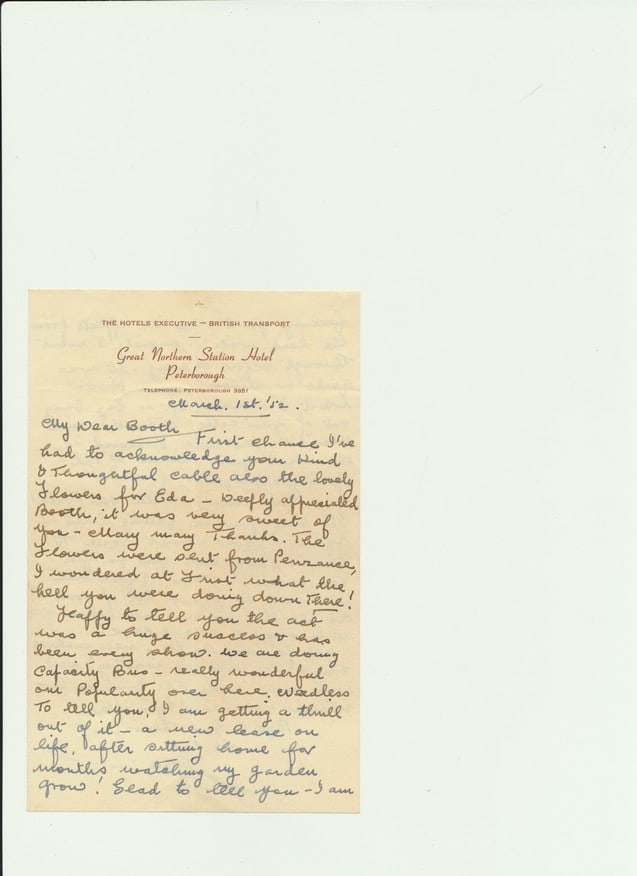 THE HOTELS EXECUTIVE — BRITISH TRANSPORT
Great Northern Station Hotel
Peterborough
TELEPHONE: PETERBOROUGH 3651
March. 1st. '52.
My Dear Booth
First chance I've
had to acknowledge your kind
& Thoughtful cable also the lovely
Flowers for Eda — Deeply appreciated
Booth, it was very sweet of
you — Many many Thanks. The
Flowers were sent from Penzance,
I wondered at First what the
hell you were doing down There!
Happy to tell you the act
was a huge success & has
been every show. We are doing
Capacity Bus — really wonderful
our Popularity over here. Needless
To tell you, I am getting a thrill
out of it — a new lease on
life, after sitting home for
months watching my garden
grow! Glad to tell you — I am